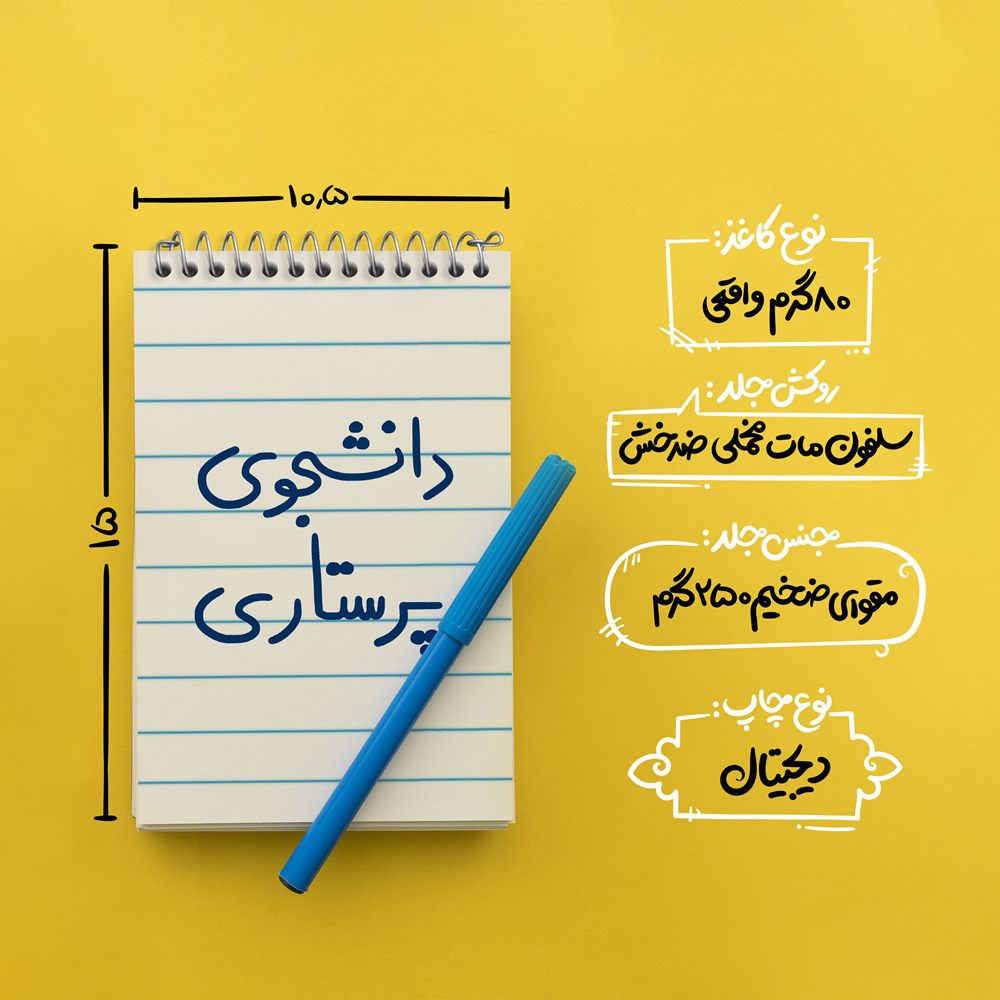 ۱۰٫۵
۱۵
دانشجوی
پرستاری
نوع کاغذ:
۸۰گرم واقعی
روکش جلد:
سلفون مات مخملی ضدخش
جنس جلد:
مقوای ضخیم ۲۵۰گرم
نوع چاپ:
دیجیتال